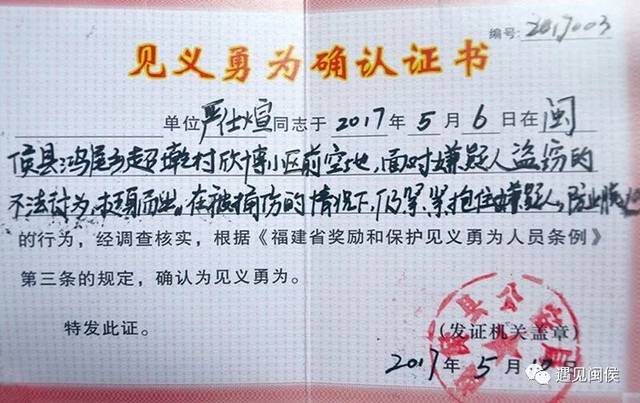 编号:2017003
见义勇为确认证书
单位严仕煊同志于 2017 年 5 月 6 日在闽
侯县鸿尾乡超墘村欣博小区前空地,面对嫌疑人盗窃的
不法行为,挺身而出。在被捅伤的情况下,仍紧紧抱住嫌疑人,防止
的行为,经调查核实,根据《福建省奖励和保护见义勇为人员条例》
第三条的规定,确认为见义勇为。
特发此证。
县公安局
(发证机关盖章)
2017 年 5 月
遇见闽侯